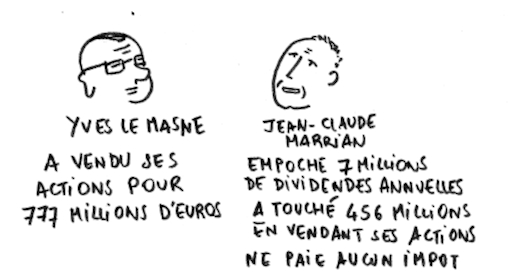 YVES LE MASNE
A VENDU SES
ACTIONS POUR
777 MILLIONS D'EUROS
JEAN-CLAUDE
MARRIAN
EMPOCHE 7 MILLIONS
DE DIVIDENDES ANNUELLES
A TOUCHÉ 456 MILLIONS
EN VENDANT SES ACTIONS
NE PAIE AUCUN IMPOT